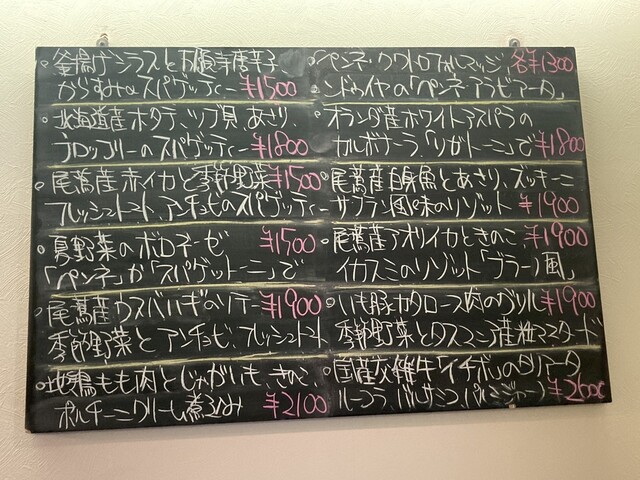 釜揚げシラスと万願寺唐辛子、
からすみのスパゲッティー ¥1500
北海道産ホタテ、ツブ貝、あさり、
ブロッコリーのスパゲッティー ¥1800
尾鷲産赤イカと季節野菜 ¥1500
フレッシュトマト、アンチョビのスパゲッティー
夏野菜のボロネーゼ ¥1500
「ペンネ」か「スパゲットーニ」で
尾鷲産ウスバハギのソテー ¥1900
季節野菜とアンチョビ、フレッシュトマト
地鶏もも肉とじゃがいも、きのこ、
ポルチーニクリーム煮込み ¥2100
ペンネ・クワトロフォルマッジ、各¥1300
ンドゥイヤの「ペンネ・アラビアータ」
オランダ産ホワイトアスパラの
カルボナーラ、「リガトーニ」で ¥1800
尾鷲産白身魚とあさり、ズッキーニ
サフラン風味のリゾット ¥1900
尾鷲産アオリイカときのこ ¥1900
イカスミのリゾット「ブラーノ風」
いも豚カタロース肉のグリル ¥1900
季節野菜とタスマニア産粒マスタード
国産交雑牛「イチボ」のタリアータ
ルーコラ バルサミコ パルミジャーノ ¥2600